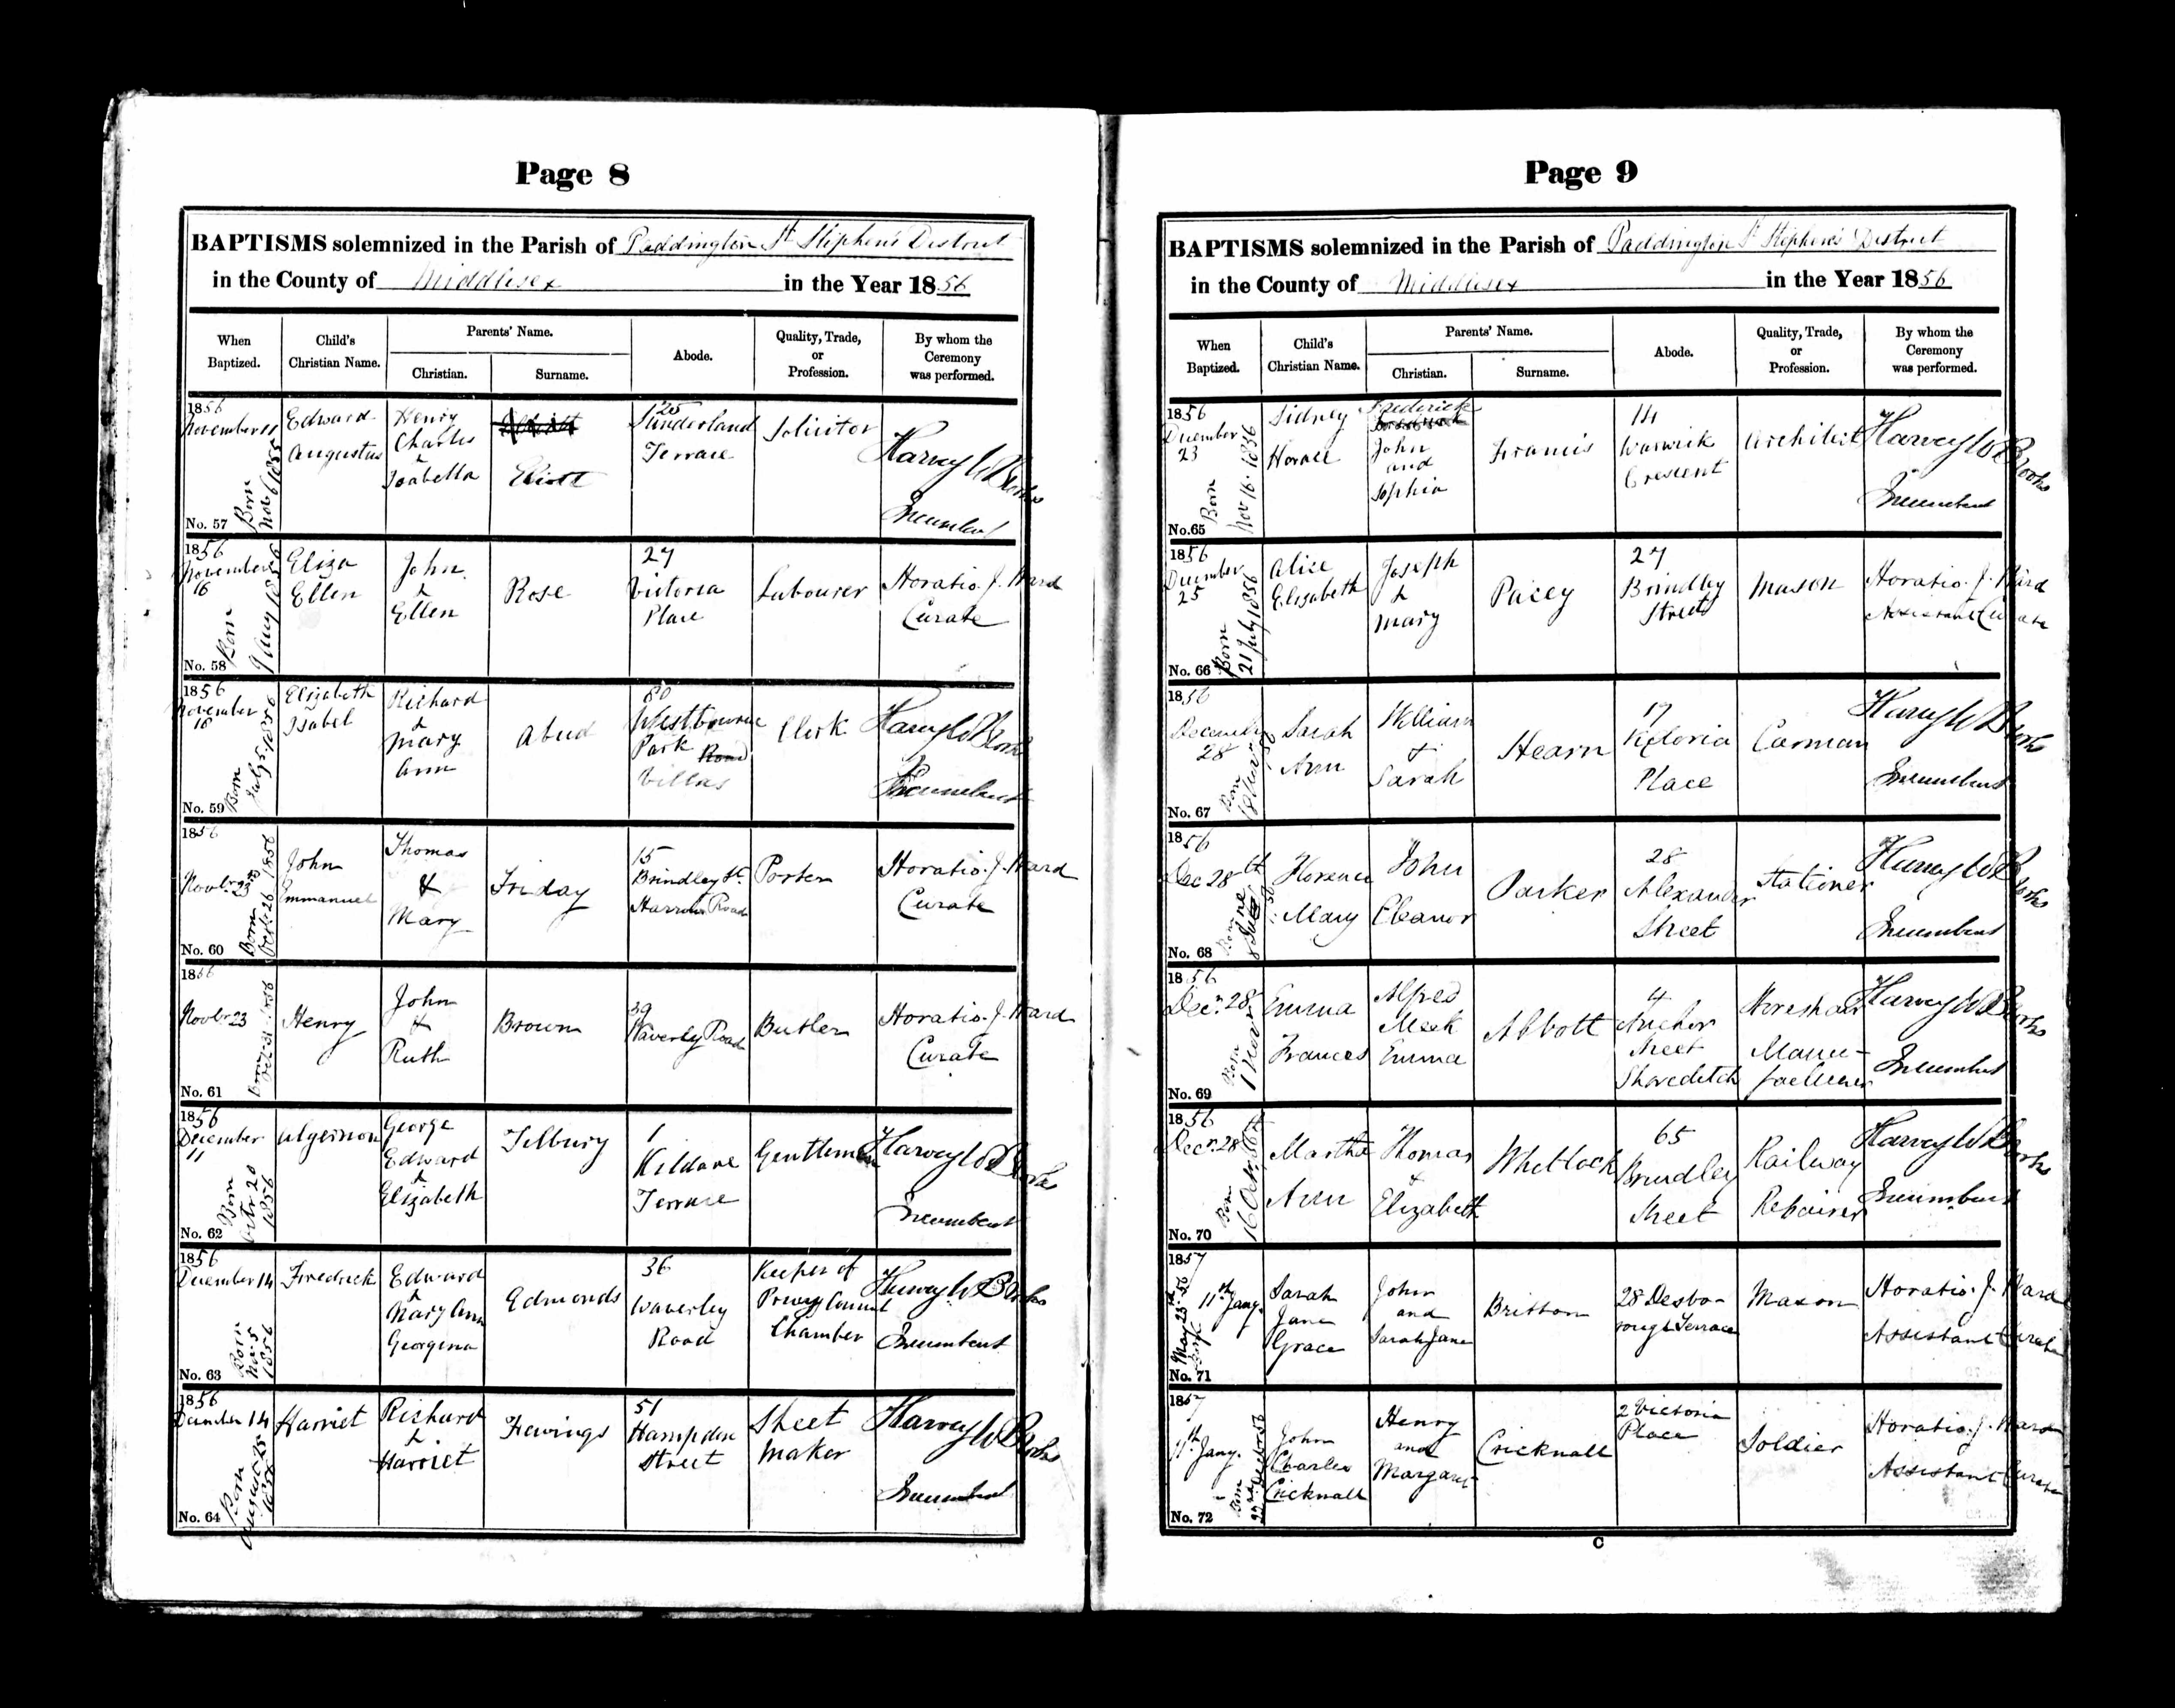 Page 8
BAPTISMS solemnized in the Parish of Paddington St Stephen's District
in the County of Middlesex in the Year 1856
When Baptized.
Child's Christian Name.
Parents' Name.
Christian.
Surname.
Abode.
Quality, Trade, or Profession.
By whom the Ceremony was performed.
1856
November 11
Born
Nov 6 1855
No. 57
Edward
Augustus
Henry
Charles
&
Isabella
Eliott
Sunderland
Terrace
Solicitor
Harvey W Brooks
Incumbent
1856
November
16
Born
9 Aug 1856
No. 58
Eliza
Ellen
John
&
Ellen
Rose
27
Victoria
Place
Labourer
Horatio. J. Ward
Curate
1856
November
18
Born
July 5. 1856
No. 59
Elizabeth
Isabel
Richard
&
Mary
Ann
Abud
80
Westbourne
Park Road
Villas
Clerk
Harvey W Brooks
Incumbent
1856
Novbr 23rd
Born
1856
No. 60
John
Emmanuel
Thomas
&
Mary
Friday
15
Brindley St.
Harrow Road
Porter
Horatio. J. Ward
Curate
1856
Novbr 23
Born
1856
No. 61
Henry
John
&
Ruth
Brown
39
Waverley Road
Butler
Horatio. J. Ward
Curate
1856
December
11
Born
20
1856
No. 62
Algernon
George
Edward
&
Elizabeth
Tilbury
1
Kildare
Terrace
Gentleman
Harvey W Brooks
Incumbent
1856
December 14
Born
Nov 5
1856
No. 63
Fredrick
Edward
&
Mary Ann
Georgina
Edmonds
36
Waverley
Road
Keeper of
Privy Council
Chamber
Harvey W Brooks
Incumbent
1856
December 14
Born
August 25
1856
No. 64
Harriet
Richard
&
Harriet
Fewings
51
Hampden
Street
Sheet
Maker
Harvey W Brooks
Incumbent
Page 9
BAPTISMS solemnized in the Parish of Paddington St Stephen's District
in the County of Middlesex in the Year 1856
When Baptized.
Child's Christian Name.
Parents' Name.
Christian.
Surname.
Abode.
Quality, Trade, or Profession.
By whom the Ceremony was performed.
1856
December
23
Born
Nov 16. 1856
No. 65
Sidney
Horace
Frederick
John
and
Sophia
Francis
14
Warwick
Crescent
Architect
Harvey W Brooks
Incumbent
1856
December
25
Born
21 July 1856
No. 66
Alice
Elisabeth
Joseph
&
Mary
Pacey
27
Brindley
Street
Mason
Horatio. J. Ward
Assistant Curate
1856
December
28
Born
No. 67
Sarah
Ann
William
&
Sarah
Hearn
17
Victoria
Place
Carman
Harvey W Brooks
Incumbent
1856
Dec 28th
Born
No. 68
Florence
Mary
John
Eleanor
Parker
28
Alexander
Street
Stationer
Harvey W Brooks
Incumbent
1856
Decr. 28
Born
No. 69
Emma
Frances
Alfred
Meek
Emma
Abbott
4
Anchor
Street
Shoreditch
Horsehair
Manu-
facturer
Harvey W Brooks
Incumbent
1856
Decr. 28
Born
No. 70
Martha
Ann
Thomas
&
Elizabeth
Whetlock
65
Brindley
Street
Railway
Repairer
Harvey W Brooks
Incumbent
1857
11th Jany.
Born
No. 71
Sarah
Jane
Grace
John
and
Sarah Jane
Britton
28 Desbo-
rough Terrace
Mason
Horatio. J. Ward
Assistant Curate
1857
11th Jany.
Born
No. 72
John
Charles
Cricknall
Henry
and
Margaret
Cricknall
2 Victoria
Place
Soldier
Horatio. J. Ward
Assistant Curate
C